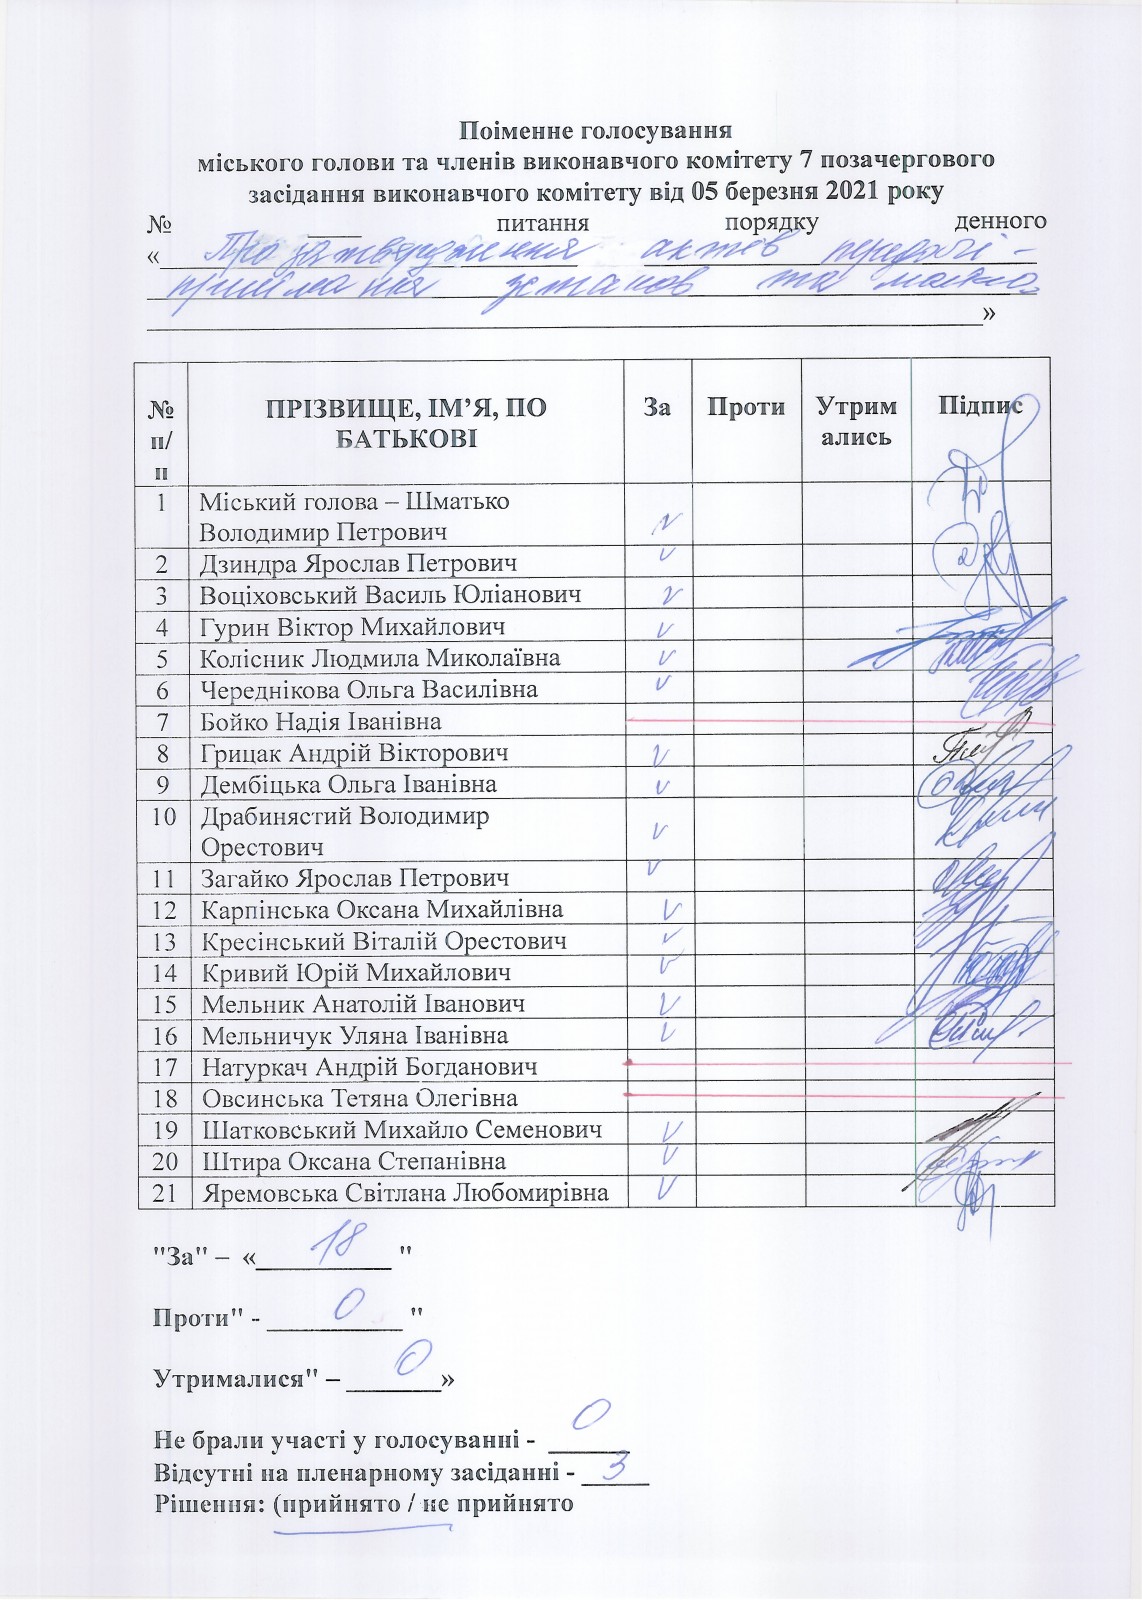 Поіменне голосування
міського голови та членів виконавчого комітету 7 позачергового
засідання виконавчого комітету від 05 березня 2021 року
№ ____ питання порядку денного
«Про затвердження актів передачі -
приймання
»
№ п/п ПРІЗВИЩЕ, ІМ’Я, ПО БАТЬКОВІ За Проти Утрим ались Підпис
1 Міський голова – Шматько
Володимир Петрович v
2 Дзиндра Ярослав Петрович v
3 Воціховський Василь Юліанович v
4 Гурин Віктор Михайлович v
5 Колісник Людмила Миколаївна v
6 Череднікова Ольга Василівна v
7 Бойко Надія Іванівна
8 Грицак Андрій Вікторович v
9 Дембіцька Ольга Іванівна v
10 Драбинястий Володимир
Орестович v
11 Загайко Ярослав Петрович v
12 Карпінська Оксана Михайлівна v
13 Кресінський Віталій Орестович v
14 Кривий Юрій Михайлович v
15 Мельник Анатолій Іванович v
16 Мельничук Уляна Іванівна v
17 Натуркач Андрій Богданович
18 Овсинська Тетяна Олегівна
19 Шатковський Михайло Семенович v
20 Штира Оксана Степанівна v
21 Яремовська Світлана Любомирівна v
"За" – « 18 "
Проти" - 0 "
Утрималися" – 0 »
Не брали участі у голосуванні - 0
Відсутні на пленарному засіданні - 3
Рішення: (прийнято / не прийнято